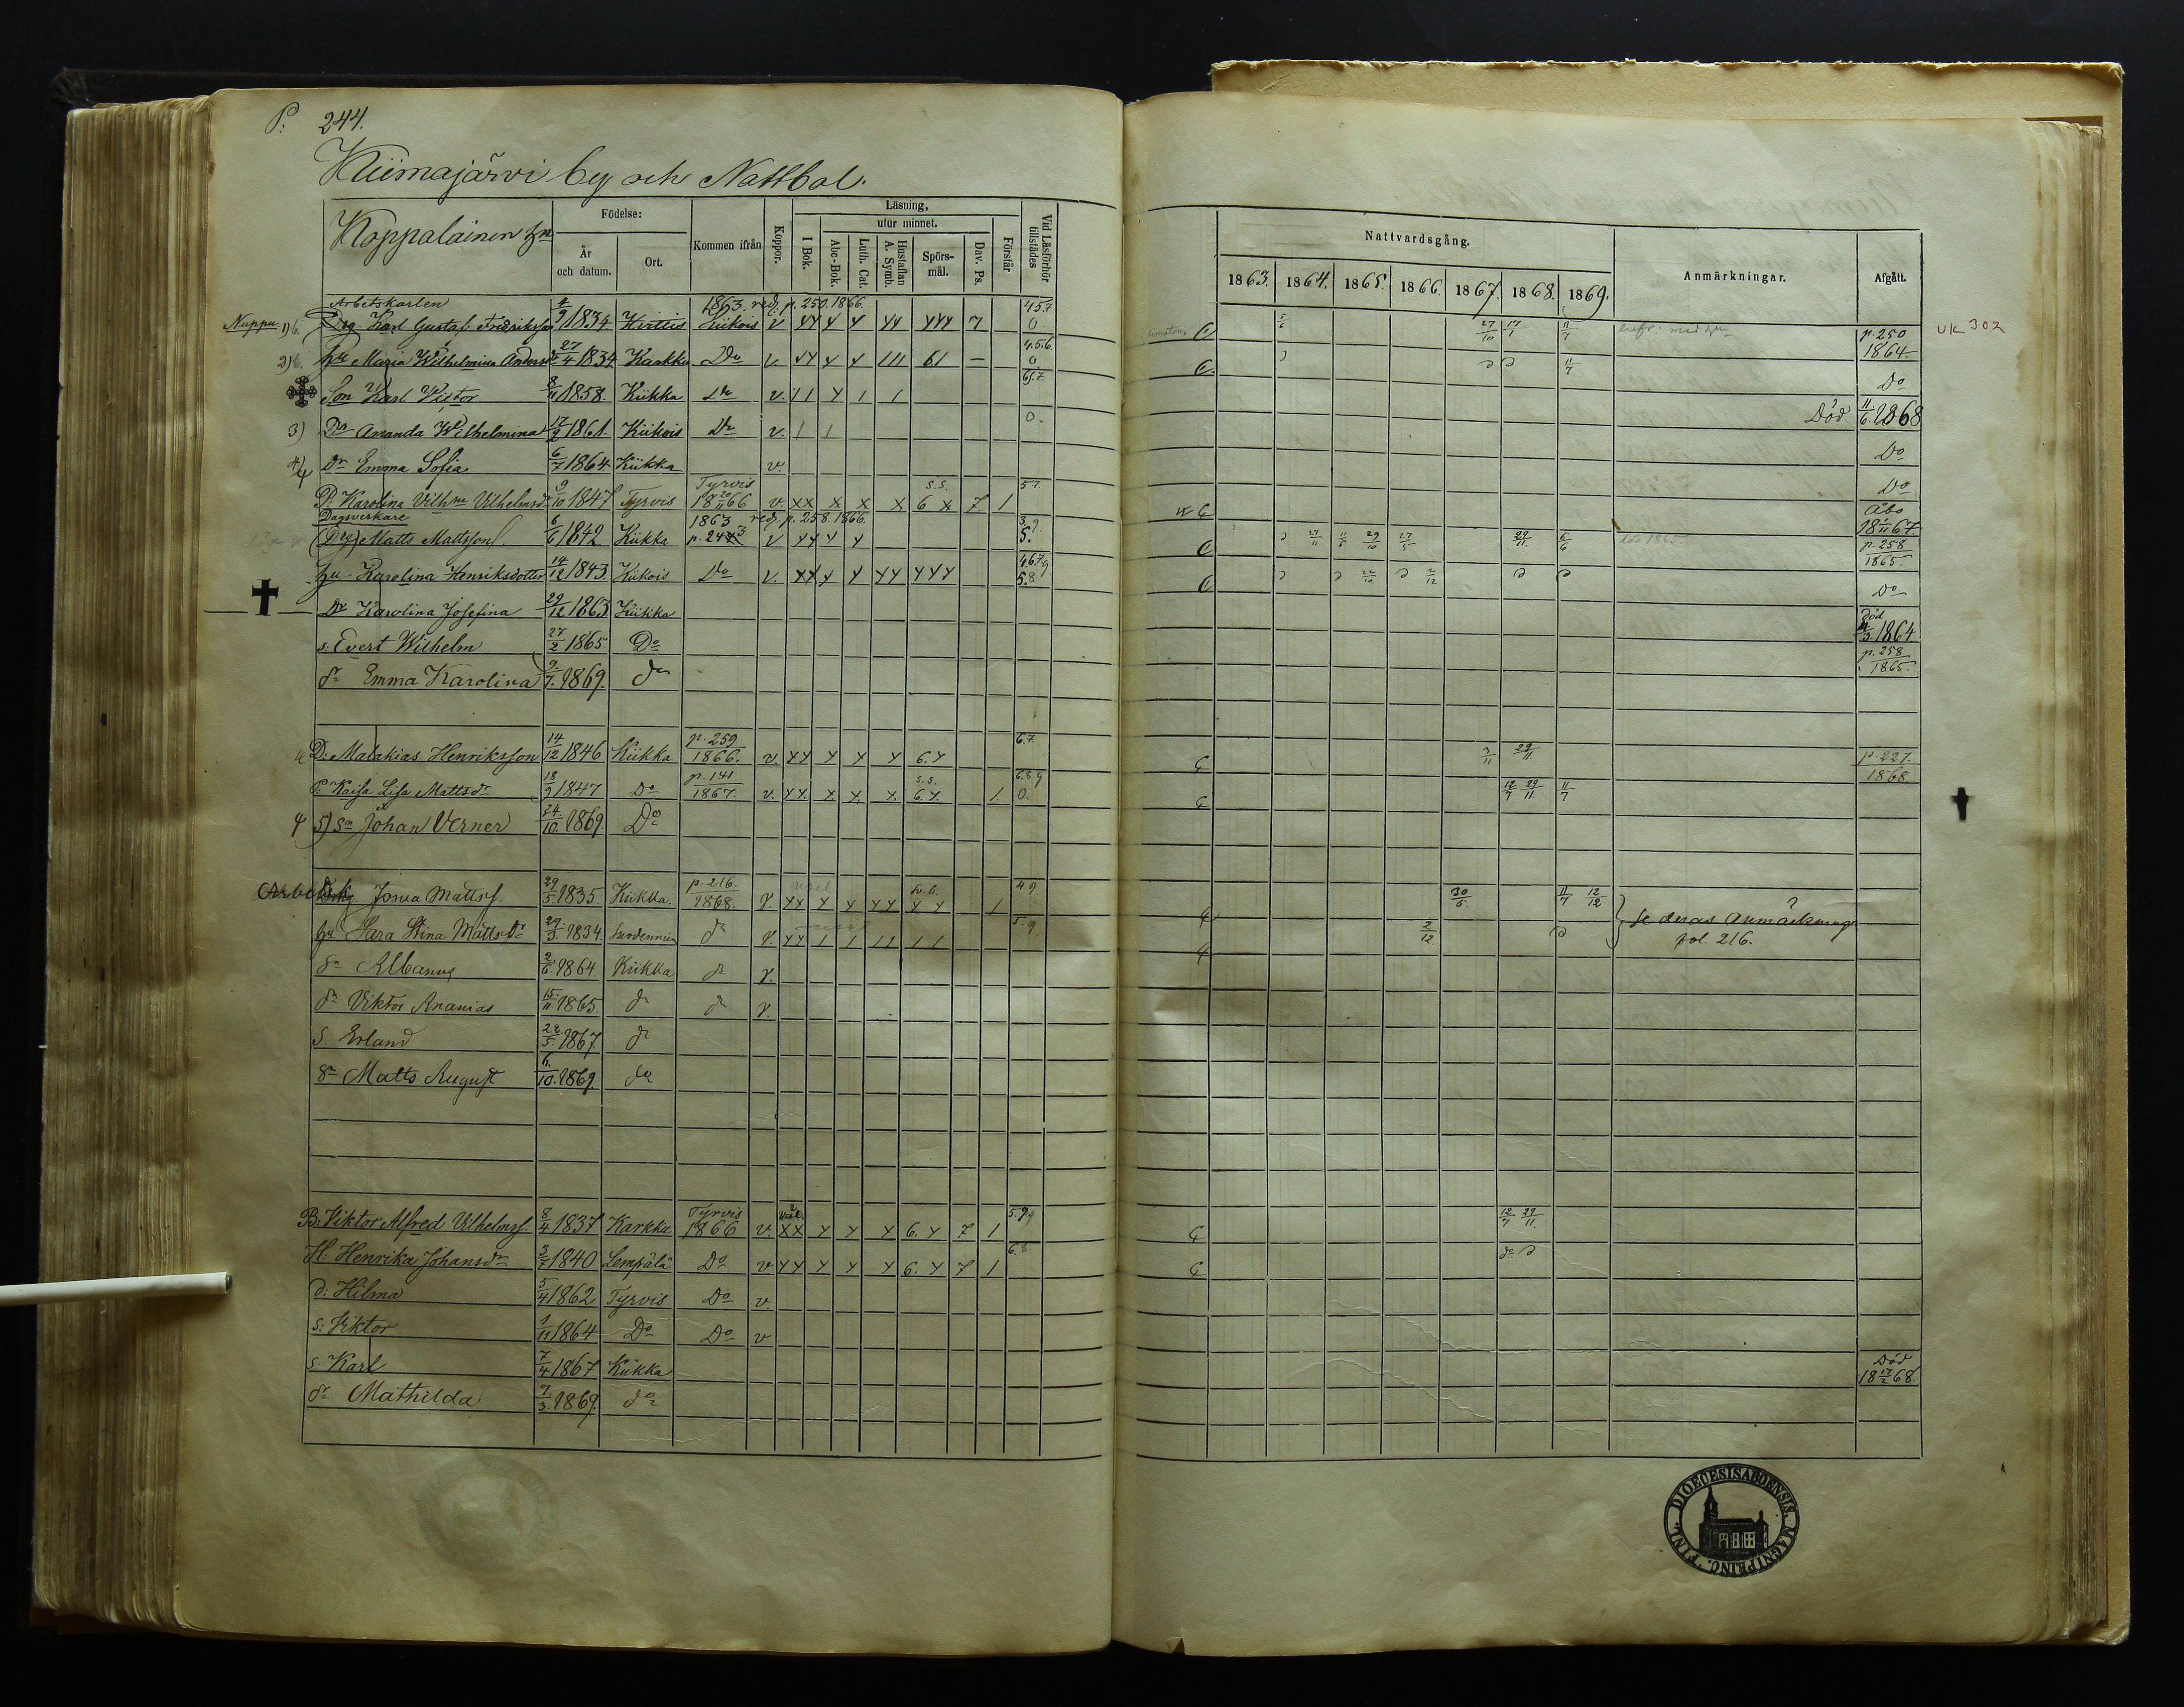 P: 244.
Kiimajärvi by och Nattbol.
Koppalainen hn
Födelse:
År och datum.
Ort.
Kommen ifrån
Koppor.
Läsning,
I Bok.
utur minnet.
Abc-Bok.
Luth. Cat.
Hustaflan A. Symb.
Spörs-mål.
Dav. Ps.
Förstår
Vid Läsförhör tillstädes
Nattvardsgång.
1863. 1864. 1865. 1866. 1867. 1868. 1869.
Anmärkningar.
Afgått.
Arbetskarlen 1863. red. p. 250. 1866. 4.5.7
Nuppu. 1) 6. Drg Karl Gustaf Fredriksson 4/9 1834 Kiikois v YY Y Y YY YYY 7 0 5/6 27/10 17/1 11/7 p. 250 1864. UK 302
2) 6. hu Maria Wilhelmina Anders 27/4 1834 Karkku Do v. YY Y Y 111 61 — 4.5.6 0 11/7 Do
Son Karl Victor 8/11 1858. Kiikka Do v. 11 Y 1 1 6.7. Död 11/6. 1868
3) Dr Amanda Wilhelmina 17/2 1861. Kiikois Do v. 1 1 0. Do
4) dr Emma Sofia 6/7 1864. Kiikka v. Do
P: Karolina Vilhna Vilhelmsdr 9/10 1847 Tyrvis Tyrvis 18 20/11 66 v XX X X X s.s. 6 X 7 1 5.7. Åbo 18 1/11 67.
Dagsverkare 1863 red. p. 258. 1866.
(Drg) Matts Mattsson 6/6 1842 Kiikka p. 243 v YY Y Y 3.9. 5. 27/11 11/6 29/10 27/5 29/11. 6/6 p. 258 1865.
hu Karolina Henriksdotter 14/12 1843. Kiikois Do v. YY Y Y YY YYY 4.6.7.9 5.8. 22/10. 2/12 Do
Dr Karolina Josefina 29/12 1863 Kiikka död 4/3. 1864
s. Evert Wilhelm 27/2 1865 Do p. 258 1865.
dr Emma Karolina 9/7. 1869. do
D: Malakias Henriksson 14/12 1846 Kiikka p. 259 1866. v. YY Y Y Y 6. Y 6.7. 3/11 29/11. p. 227. 1868
P. Kaisa Lisa Mattsdr 18/9 1847 Do p. 141 1867. v. YY. Y. Y. Y. s.s. 6. Y. 1. 6.8.9 0. 12/7 29/11. 11/7
5) sn Johan Verner 24/10. 1869. Do
Josua Mattss. 29/5 1835. Kiikka. p. 216. 1868. v. YY Y Y YY Y Y 1 4.9. 30/6. 11/7 12/12
hu Sara Stina Mattsdr 29/3. 1834. Suodenniemi do v. YY 1 1 11 11 5.9. 2/12 se deras anmärkning fol. 216.
sn Albanus 2/6. 1864. Kiikka do v.
dr Viktor Ananias 15/11 1865. do do v.
s Erland 28/5. 1867. do
sn Matts August 6./10. 1869. do
B: Viktor Alfred Vilhelmss. 8/4 1837 Karkku Tyrvis 1866 v. XX Y Y Y 6. Y 7 1 5.7.9 12/7 29/11.
H: Henrika Johansdr 3/7 1840 Lempälä Do v YY Y Y Y 6. Y 7 1 6.8.
d: Hilma 5/4 1862 Tyrvis Do v.
s: Viktor 1/11 1864 Do Do v
s. Karl 7/4 1867 Kiikka Död 18 17/2 68.
dr Mathilda 7/3. 1869. do
DIOECESIS ABOENSIS. MAGN. PRINC. FINL.